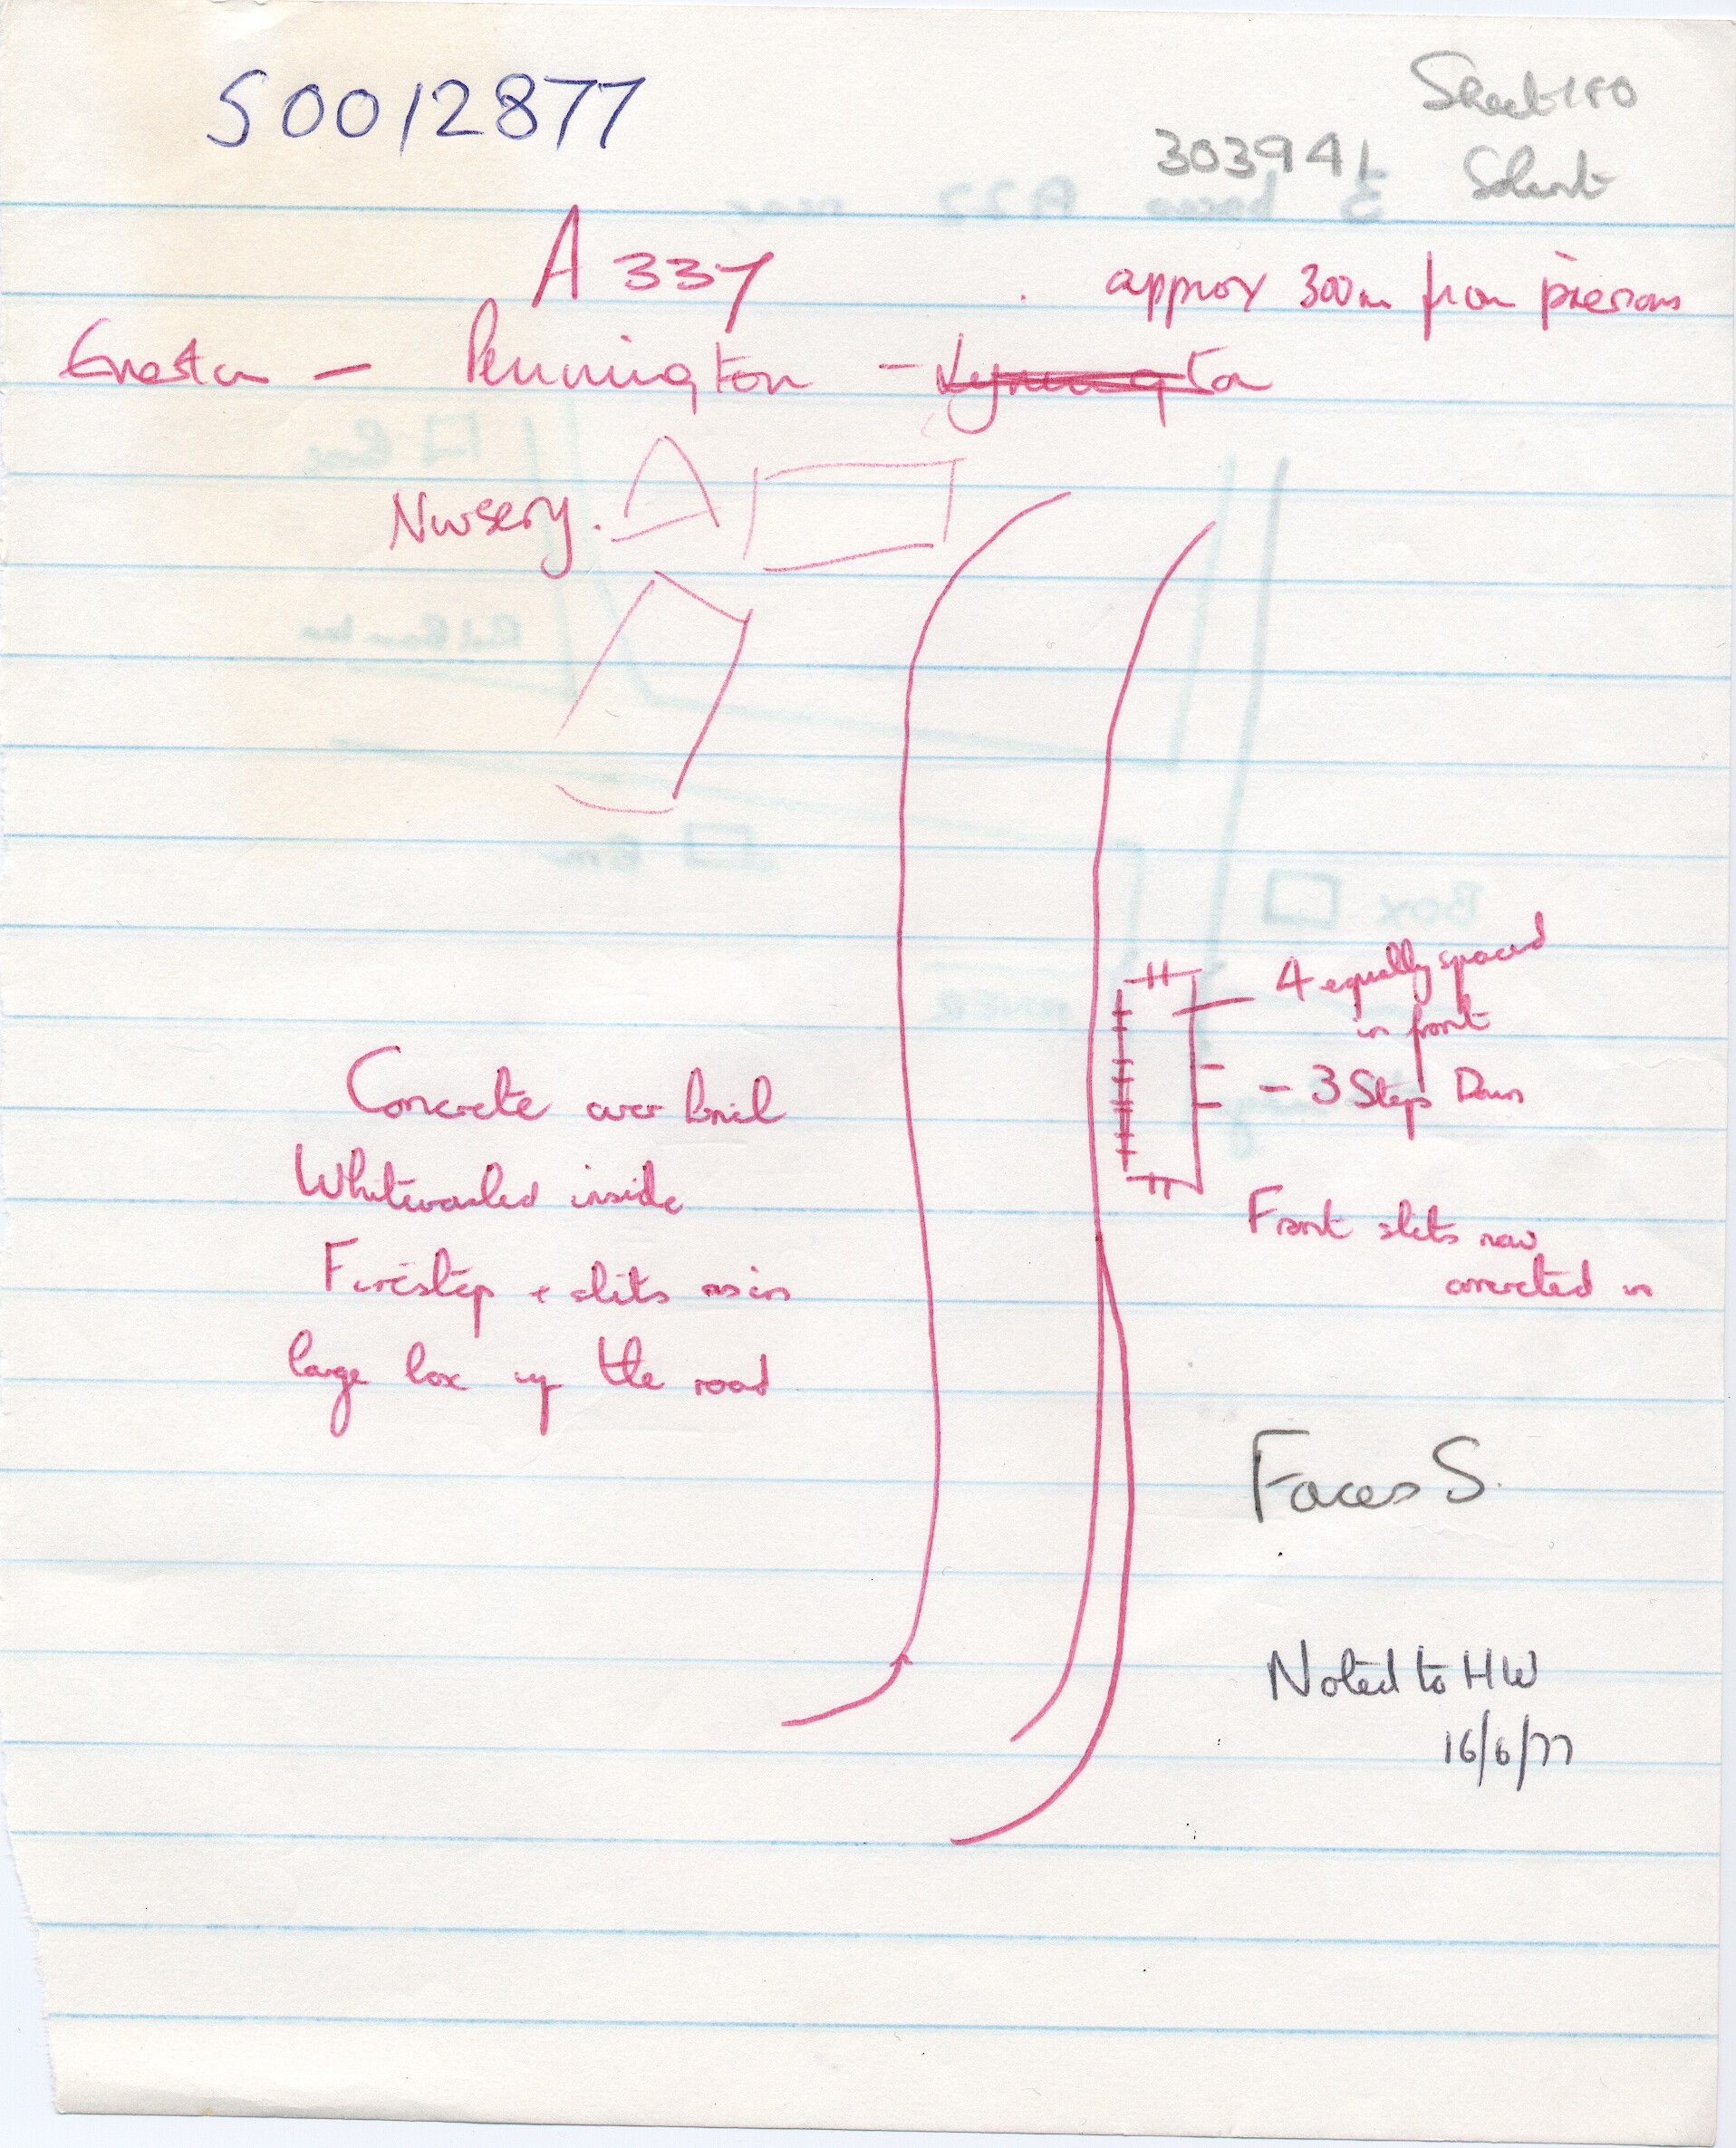 S0012877
Sheet 180
303941 Solent
A 337
approx 300m from previous
Everton - Pennington - Lymington
Nursery.
4 equally spaced
in front
- 3 Steps Down
Concrete over brick
Whitewashed inside
Firestep + slits as in
large box up the road
Front slits now
concreted in
Faces S.
Noted to HW
16/6/77